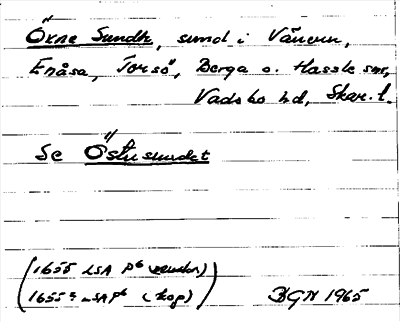 Öxne Sundh, sund i Vänern,
Enåsa, Torsö, Berga o. Hassle snr,
Vadsbo hd, Skar. l.
Se Östersundet
(1655 LSA P6
1655 LSA P6 (kop))
BGN 1965